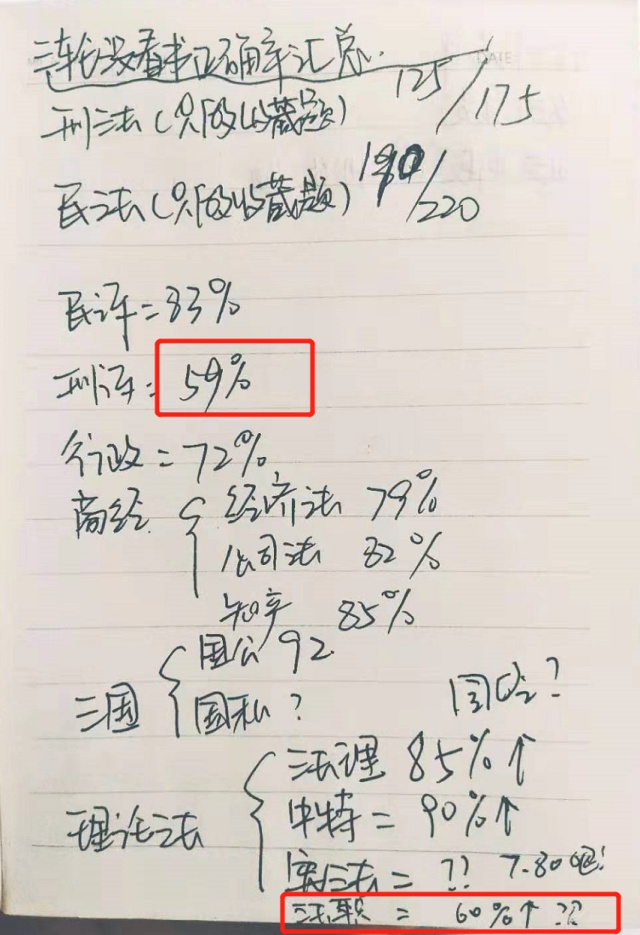 三轮没看书正确率汇总.
DATE
刑法(只做收藏题) 125/175
民法(只做收藏题) 190/220
民诉=83%
刑诉=59%
行政=72%
商经 经济法 79%
公司法 82%
知产 85%
三国 国公 92
国私 ? 国经?
理论法 法理 85%↑
中特=90%↑
宪法=?? 7.80吧!
法职=60%↑??